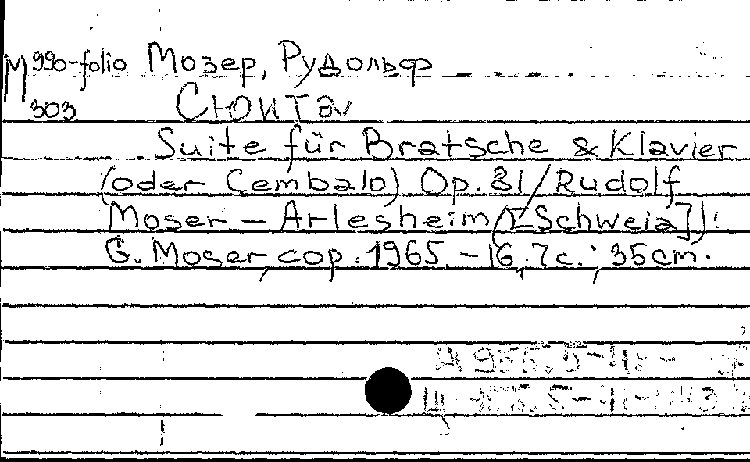 M 990-folio Мозер, Рудольф
303 Сюита
Suite für Bratsche & Klavier
(oder Cembalo) Op. 81/Rudolf
Moser – Arlesheim ([Schweia]):
G. Moser, cop. 1965. – 16, 7 с.; 35cm.